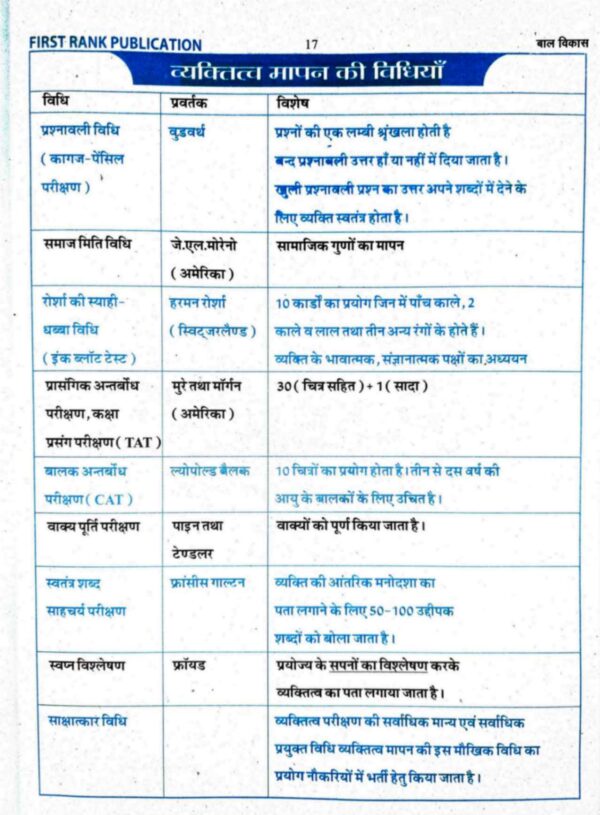 FIRST RANK PUBLICATION 17 बाल विकास
व्यक्तित्व मापन की विधियाँ
विधि प्रवर्तक विशेष
प्रश्नावली विधि वुडवर्थ प्रश्नों की एक लम्बी श्रृंखला होती है
( कागज-पेंसिल बन्द प्रश्नावली उत्तर हाँ या नहीं में दिया जाता है।
परीक्षण ) खुली प्रश्नावली प्रश्न का उत्तर अपने शब्दों में देने के
लिए व्यक्ति स्वतंत्र होता है।
समाज मिति विधि जे.एल.मोरेनो सामाजिक गुणों का मापन
( अमेरिका )
रोर्शा की स्याही- हरमन रोर्शा 10 कार्डों का प्रयोग जिन में पाँच काले, 2
धब्बा विधि ( स्विट्जरलैण्ड ) काले व लाल तथा तीन अन्य रंगों के होते हैं।
( इंक ब्लॉट टेस्ट ) व्यक्ति के भावात्मक, संज्ञानात्मक पक्षों का अध्ययन
प्रासंगिक अन्तर्बोध मुरे तथा मॉर्गन 30 ( चित्र सहित ) + 1 ( सादा )
परीक्षण, कक्षा ( अमेरिका )
प्रसंग परीक्षण ( TAT )
बालक अन्तर्बोध ल्योपोल्ड बैलक 10 चित्रों का प्रयोग होता है। तीन से दस वर्ष की
परीक्षण ( CAT ) आयु के बालकों के लिए उचित है।
वाक्य पूर्ति परीक्षण पाइन तथा वाक्यों को पूर्ण किया जाता है।
टेण्डलर
स्वतंत्र शब्द फ्रांसीस गाल्टन व्यक्ति की आंतरिक मनोदशा का
साहचर्य परीक्षण पता लगाने के लिए 50-100 उद्दीपक
शब्दों को बोला जाता है।
स्वप्न विश्लेषण फ्रॉयड प्रयोज्य के सपनों का विश्लेषण करके
व्यक्तित्व का पता लगाया जाता है।
साक्षात्कार विधि व्यक्तित्व परीक्षण की सर्वाधिक मान्य एवं सर्वाधिक
प्रयुक्त विधि व्यक्तित्व मापन की इस मौखिक विधि का
प्रयोग नौकरियों में भर्ती हेतु किया जाता है।